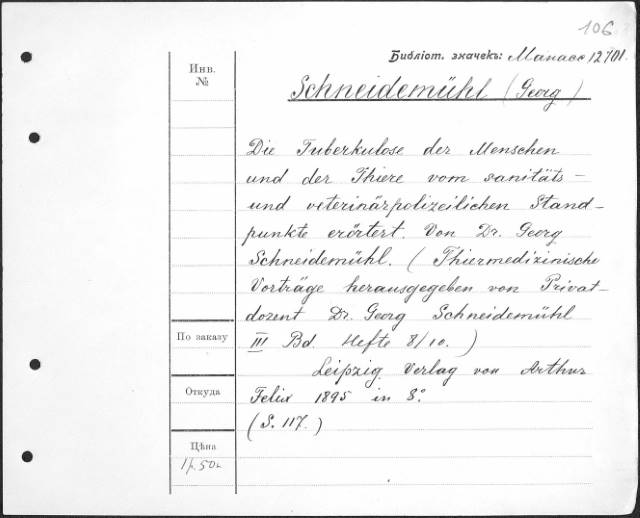 106
Библіот. значекъ: Манасс 12701.
Инв.
№
Schneidemühl (Georg)
Die Tuberkulose der Menschen
und der Thiere vom sanitäts-
und veterinärpolizeilichen Stand-
punkte erörtert. Von Dr. Georg
Schneidemühl. (Thiermedizinische
Vorträge herausgegeben von Privat-
dozent Dr. Georg Schneidemühl
III Bd. Hefte 8/10.)
По заказу
Leipzig Verlag von Arthur
Felix 1895 in 8°.
Откуда
(S. 117.)
Цѣна